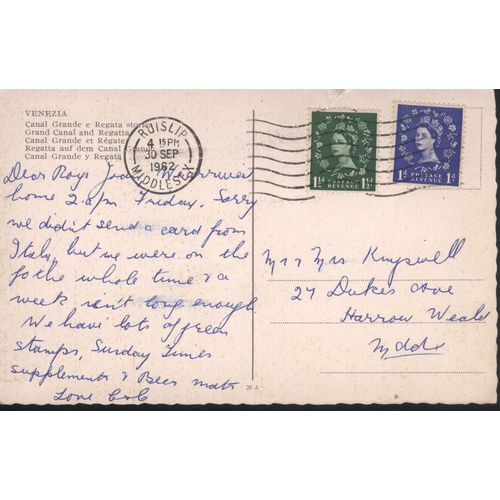 VENEZIA
Canal Grande e Regata sto
Grand Canal and Regatta
Canal Grande et Régate
Regatta auf dem Canal Grande
Canal Grande y Regata
RUISLIP
4 15 PM
30 SEP
1962
MIDDLESEX
1½d POSTAGE REVENUE 1½d
1d POSTAGE REVENUE 1d
Dear Roy & We arrived
home 2 a.m Friday. Sorry
we didn't send a card from
Italy, but we were on the
go the whole time & a
week isn't long enough
We have lots of green
stamps, Sunday Times
supplements & Beer mats
Love
Mr & Mrs
27 Dukes Ave
Harrow Weald
Middx
28 A